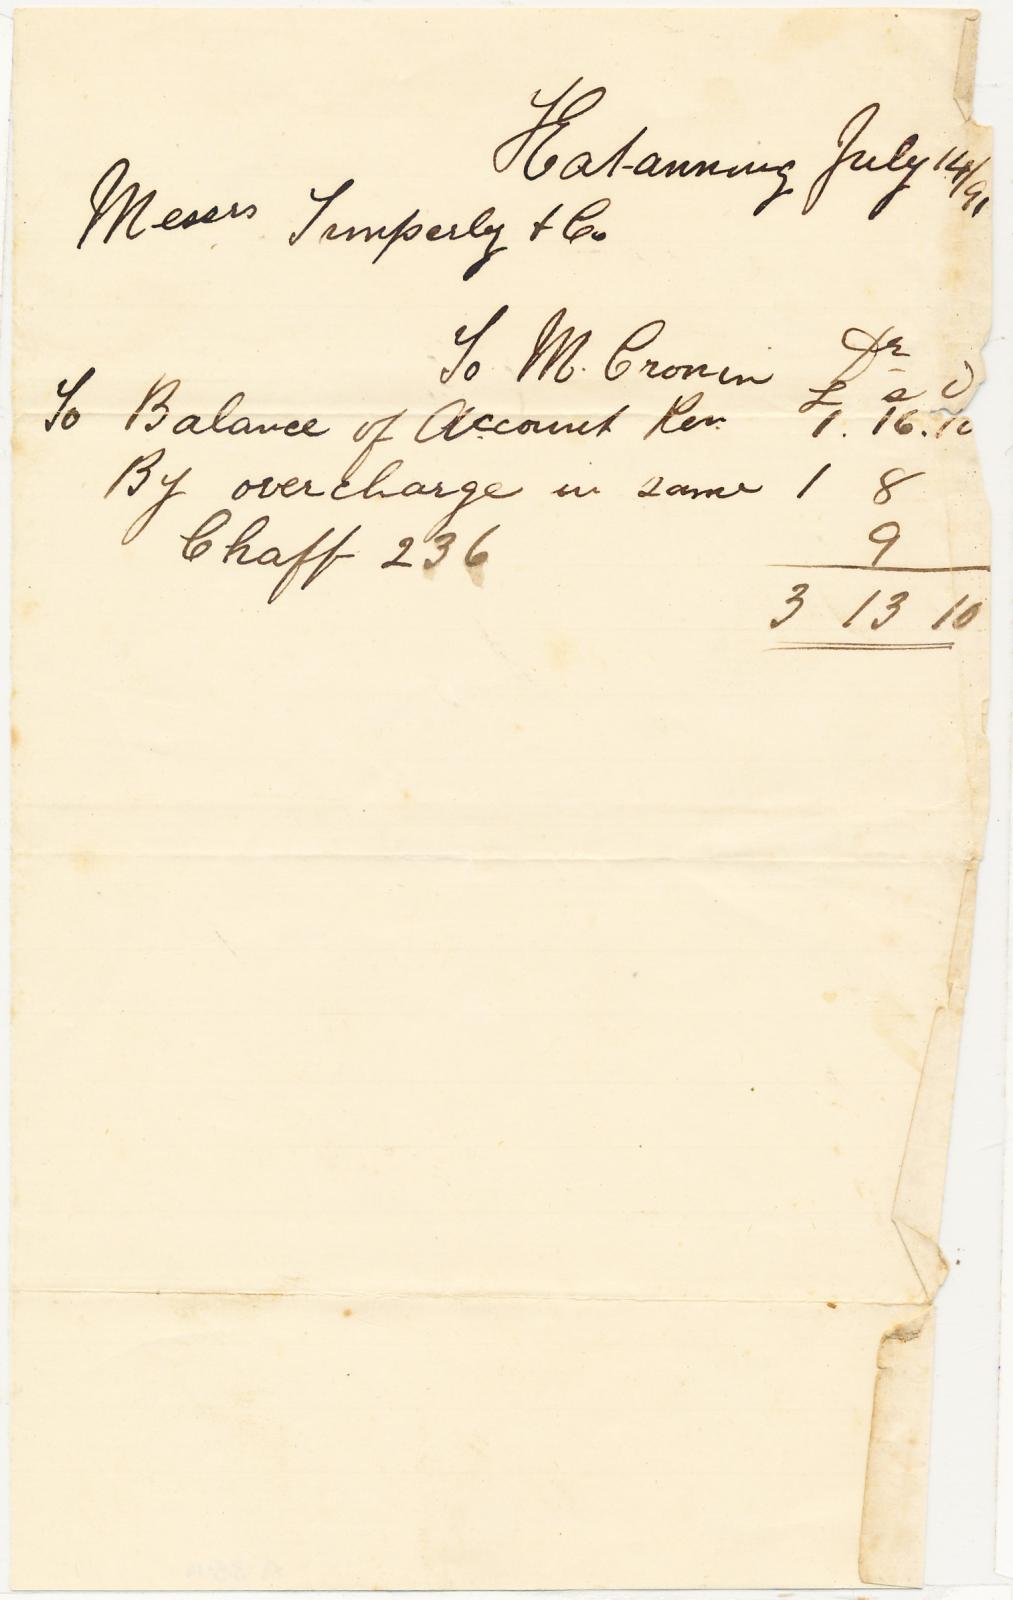 Katanning July 14/91
Messrs Timperly & Co.
To M. Cronin Dr
£ s D
To Balance of Account Ren 1. 16. 10
By overcharge in same 1 8
Chaff 236 9
3 13 10